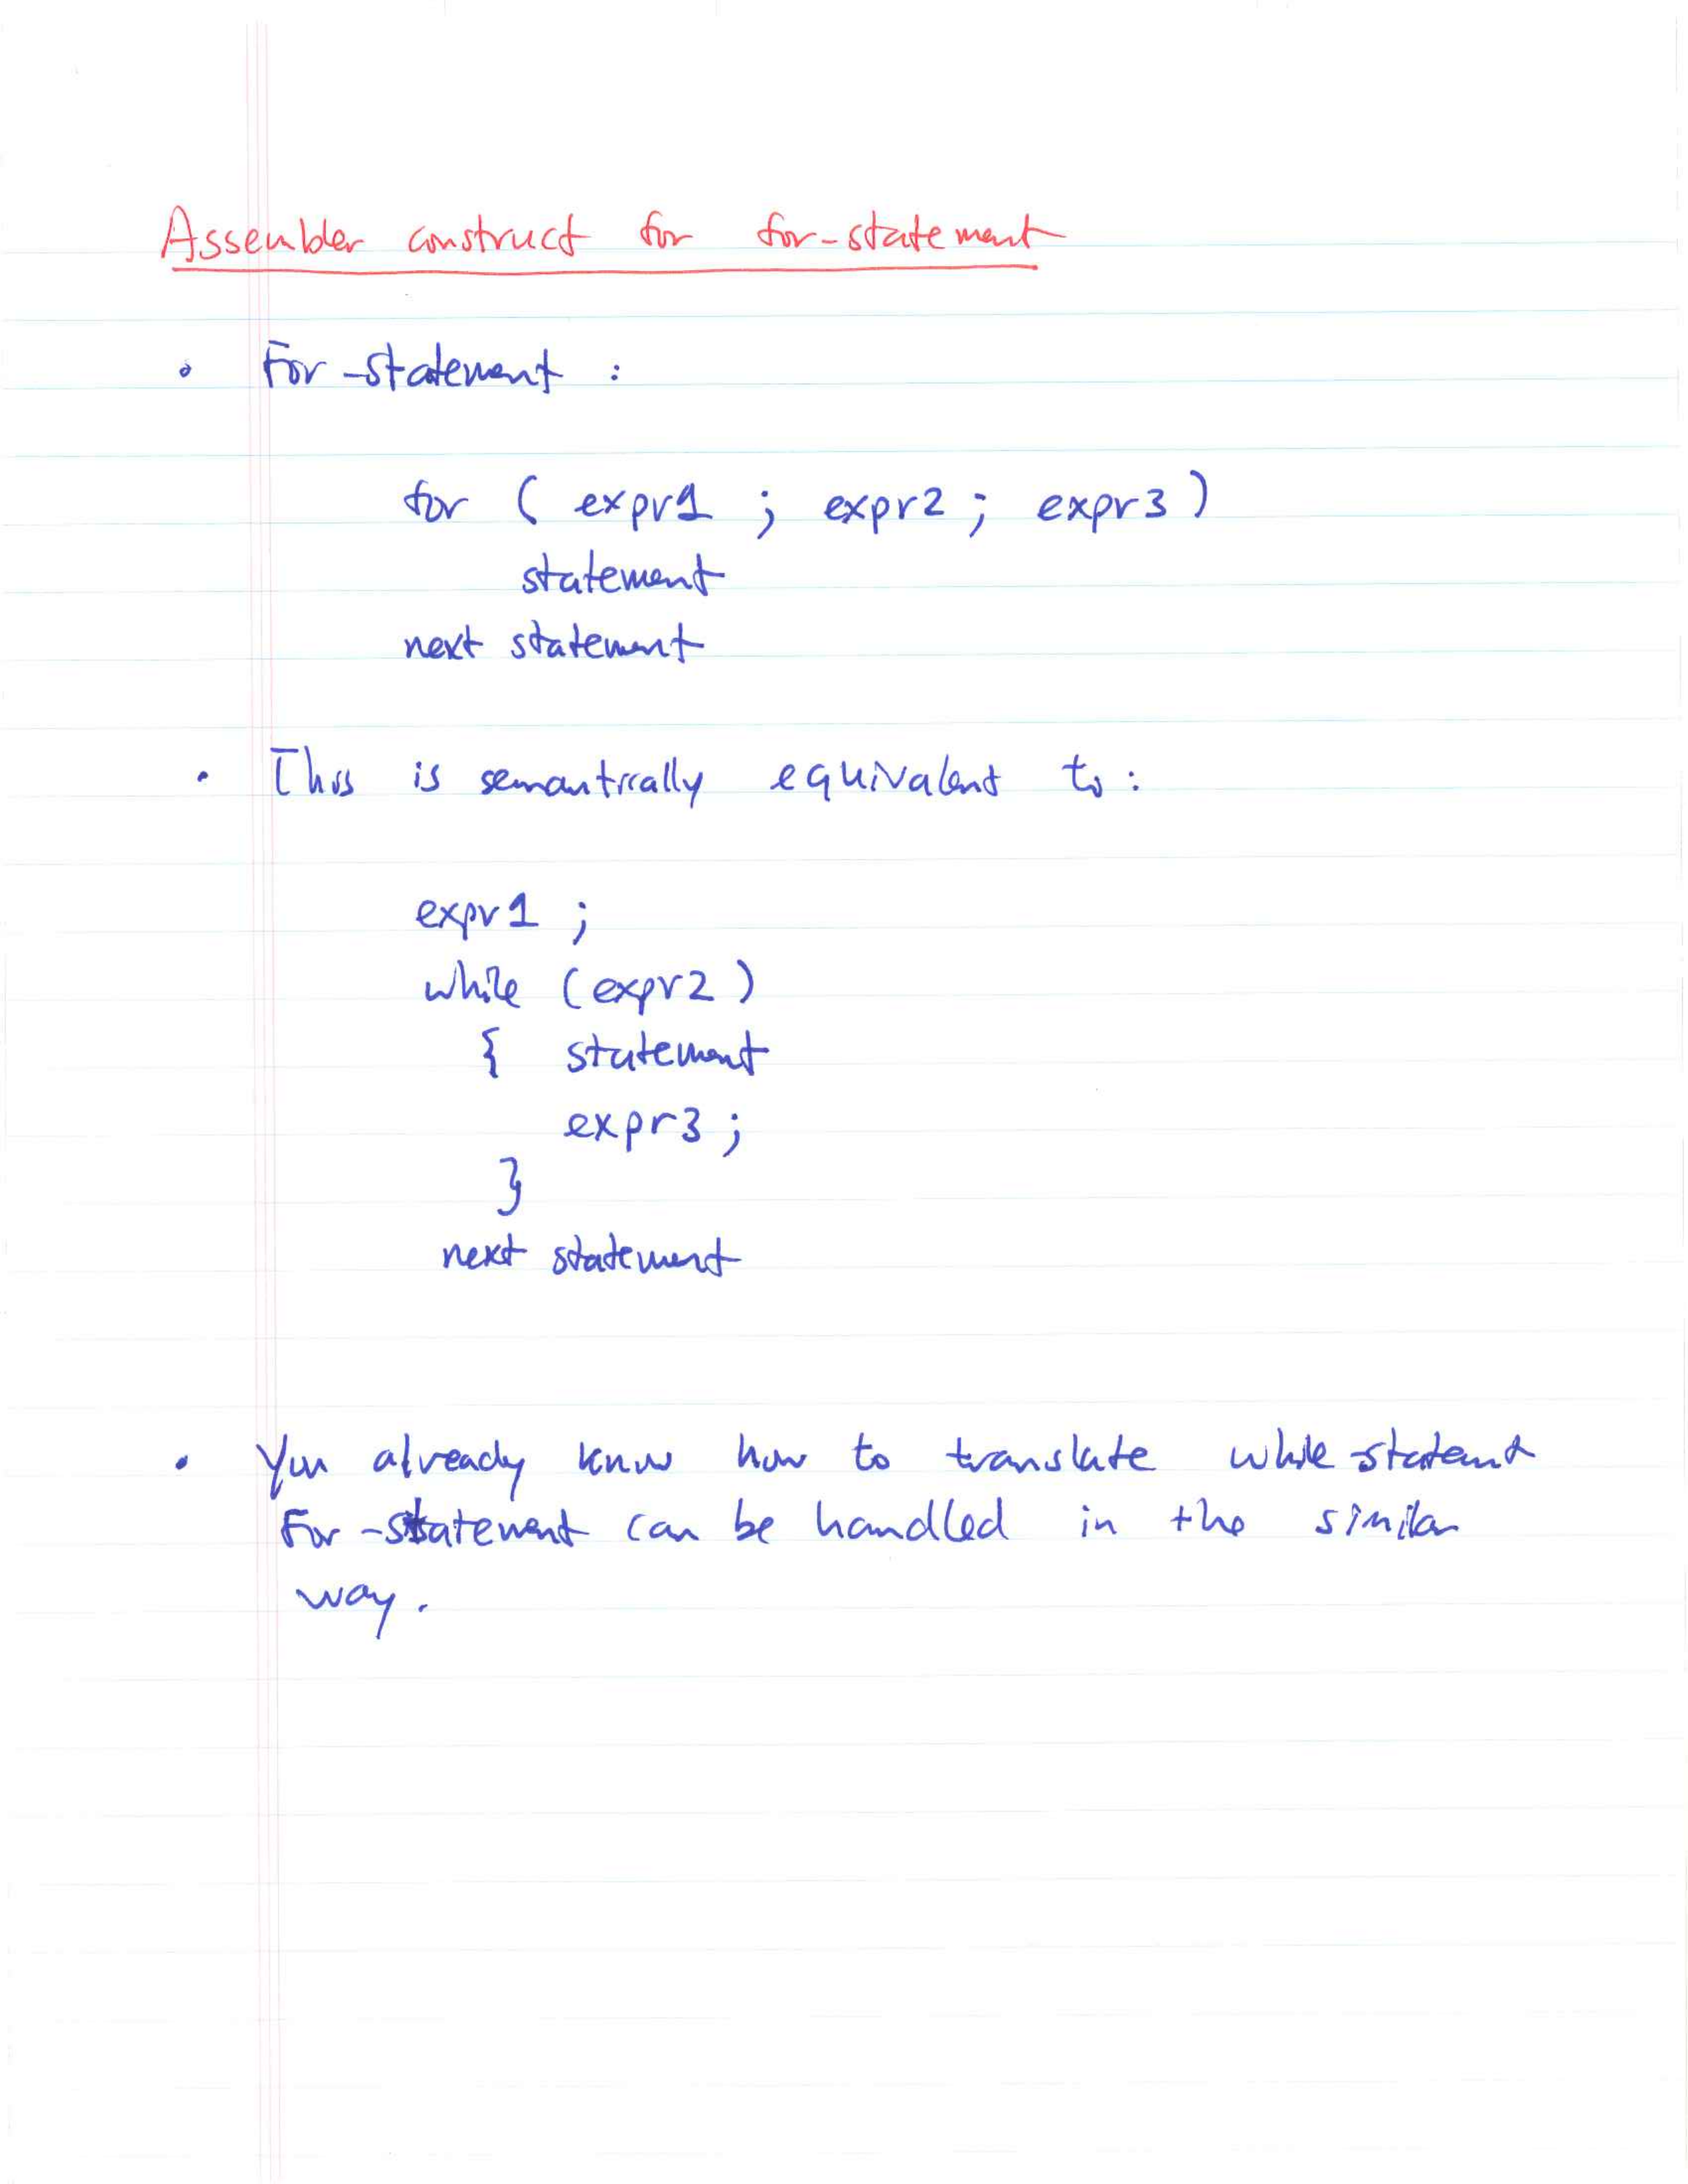 Assembler construct for for-statement
• For-statement :
for ( expr1 ; expr2 ; expr3 )
statement
next statement
• This is semantically equivalent to :
expr1 ;
while (expr2)
{ statement
expr3 ;
}
next statement
• You already know how to translate while-statemt
For-statement can be handled in the similar
way.